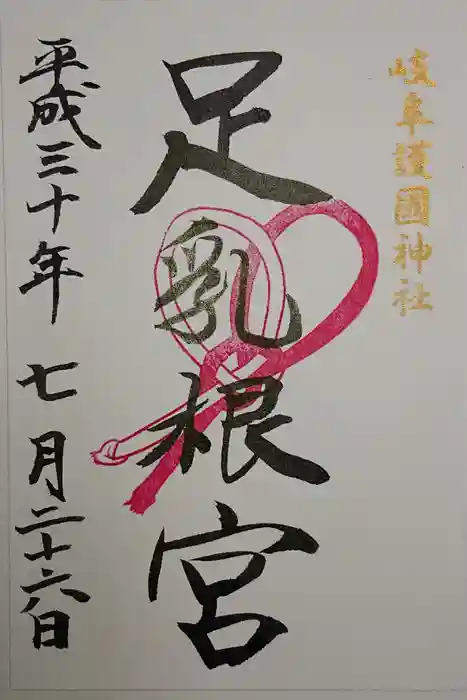 岐阜護國神社
足乳根宮
平成三十年七月二十六日